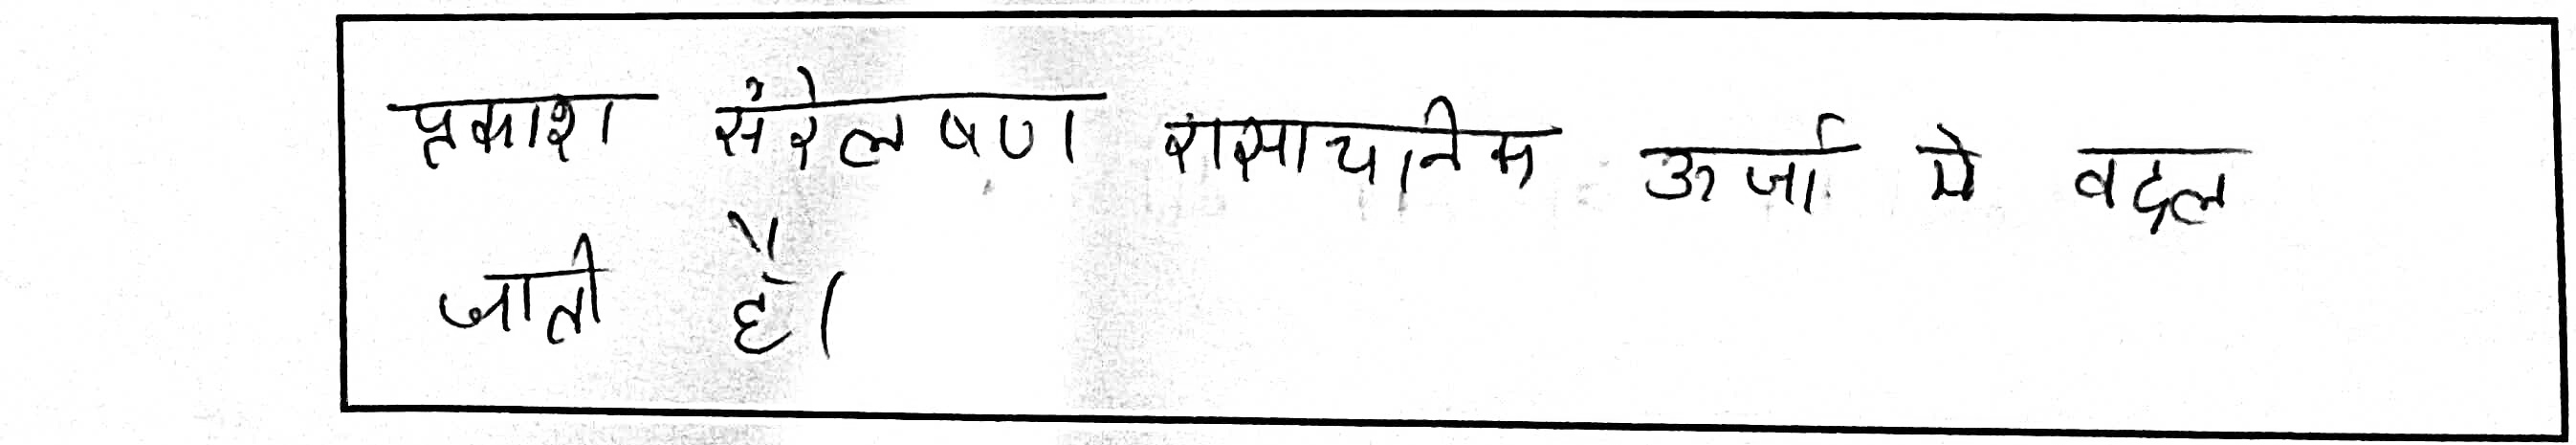 प्रकाश संश्लेषण रासायनिक ऊर्जा मे वदल
जाती है।